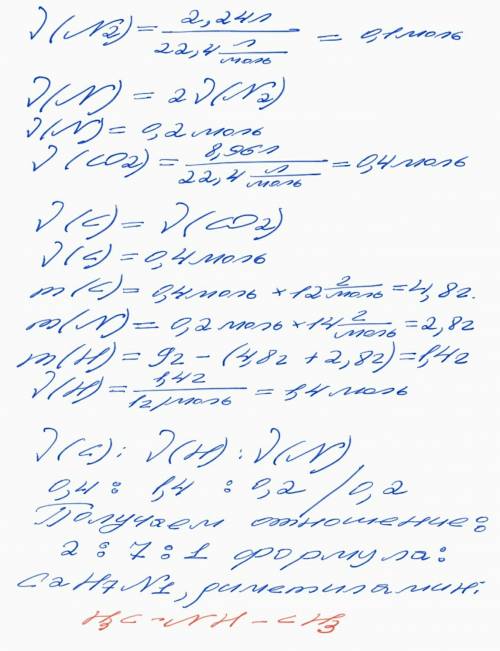 ν(N2) = 2,24л / 22,4 л/моль = 0,1 моль
ν(N) = 2ν(N2)
ν(N) = 0,2 моль
ν(CO2) = 8,96л / 22,4 л/моль = 0,4 моль
ν(C) = ν(CO2)
ν(C) = 0,4 моль
m(C) = 0,4 моль × 12 г/моль = 4,8г.
m(N) = 0,2 моль × 14 г/моль = 2,8г
m(H) = 9г - (4,8г + 2,8г) = 1,4г
ν(H) = 1,4г / 1г/моль = 1,4 моль
ν(C) : ν(H) : ν(N)
0,4 : 1,4 : 0,2 / 0,2
Получаем отношение:
2 : 7 : 1 формула:
C2H7N1, диметиламин:
H3C-NH-CH3